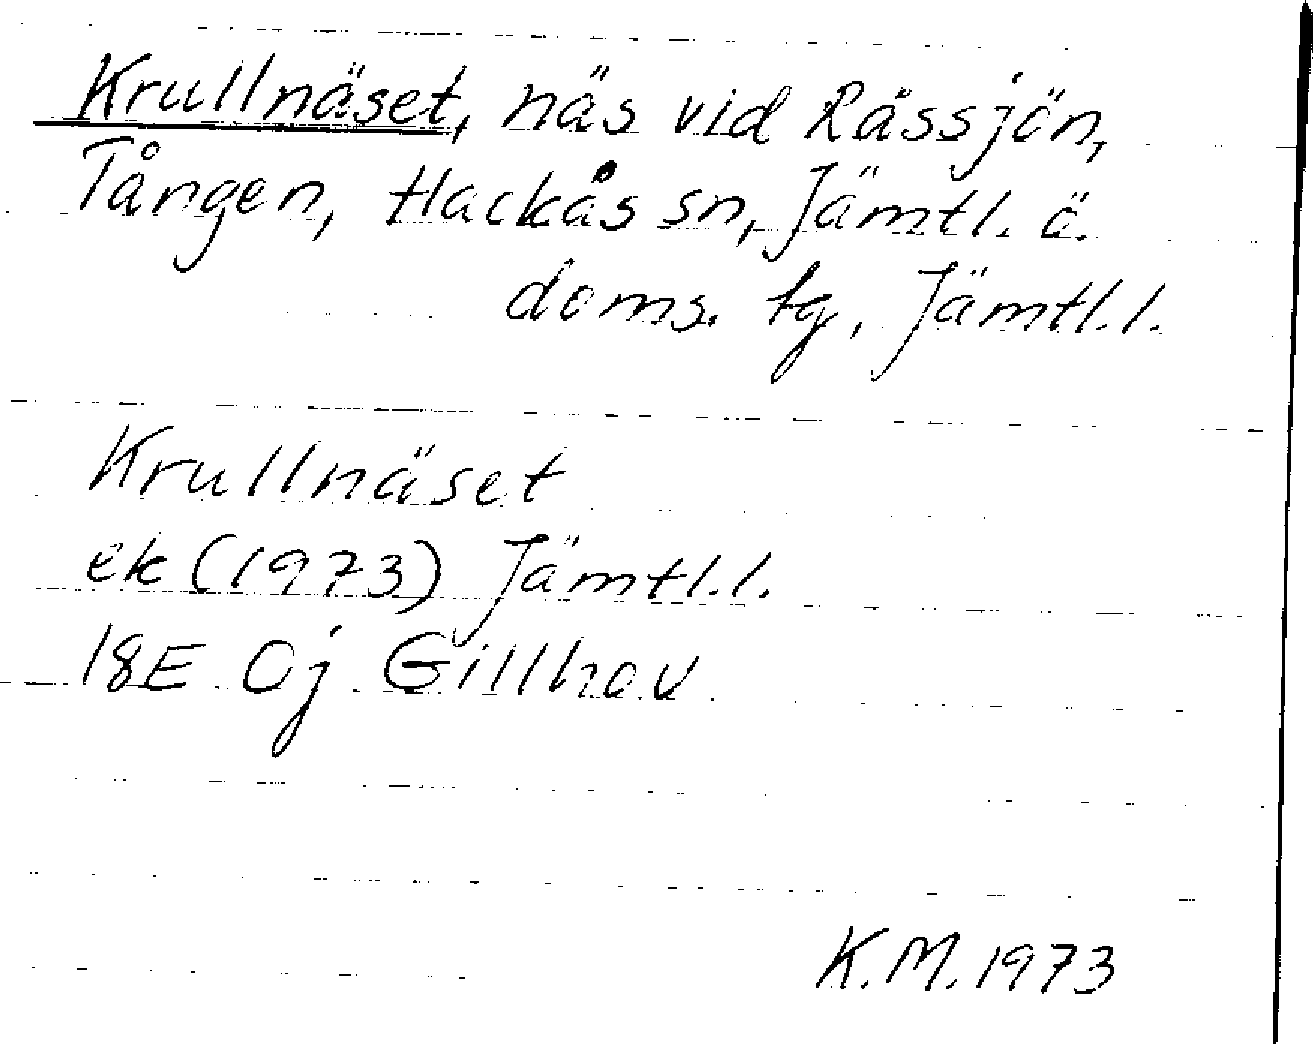 Krullnäset, näs vid Rässjön,
Tången, Hackås sn, Jämtl. ö.
doms. tg, Jämtl.l.
Krullnäset
ek (1973) Jämtl.l.
18E 0j Gillhov
K.M. 1973